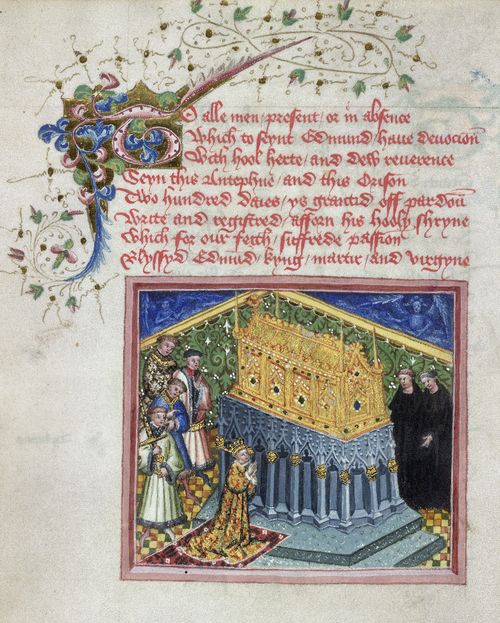 To alle men / present / or in absence
Which to seynt Edmund / haue deuocioun
With hool herte / and dew reuerence
Seyn this Antephne / and this Orison
Two hundred daies / ys grauntid off pardoun
Write and registred / afforn his hooly shryne
Which for our feith / suffrede passion
Blyssyd Edmund / kyng / martir / and virgyne